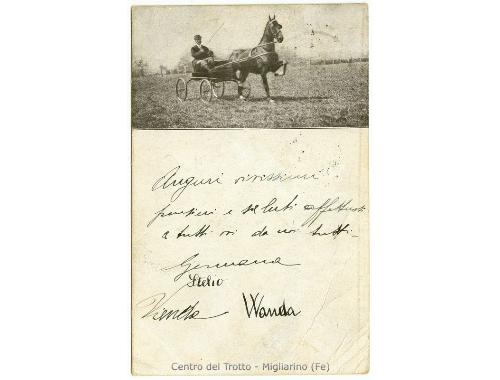 Auguri vivissimi
e saluti affettuosi
a tutti voi da noi tutti.
Germana
Stelio
Vanda Wanda
Centro del Trotto - Migliarino (Fe)